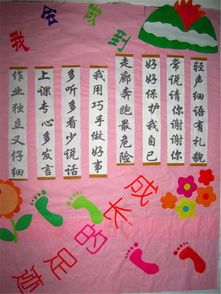 我会做到
轻声细语有礼貌
常说请你谢谢你
好好保护我自己
走廊奔跑最危险
我用巧手做好事
多听多看少说话
上课专心多发言
作业独立又仔细
成长的足迹